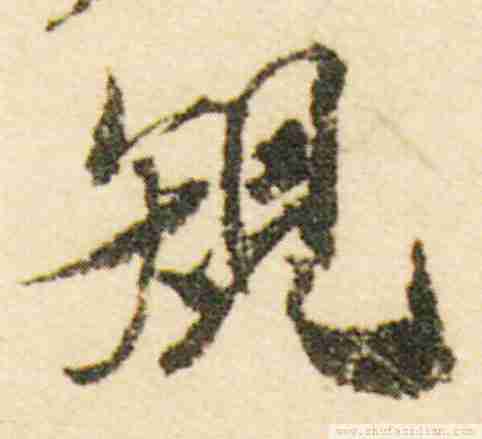 規
www.shufazidian.com